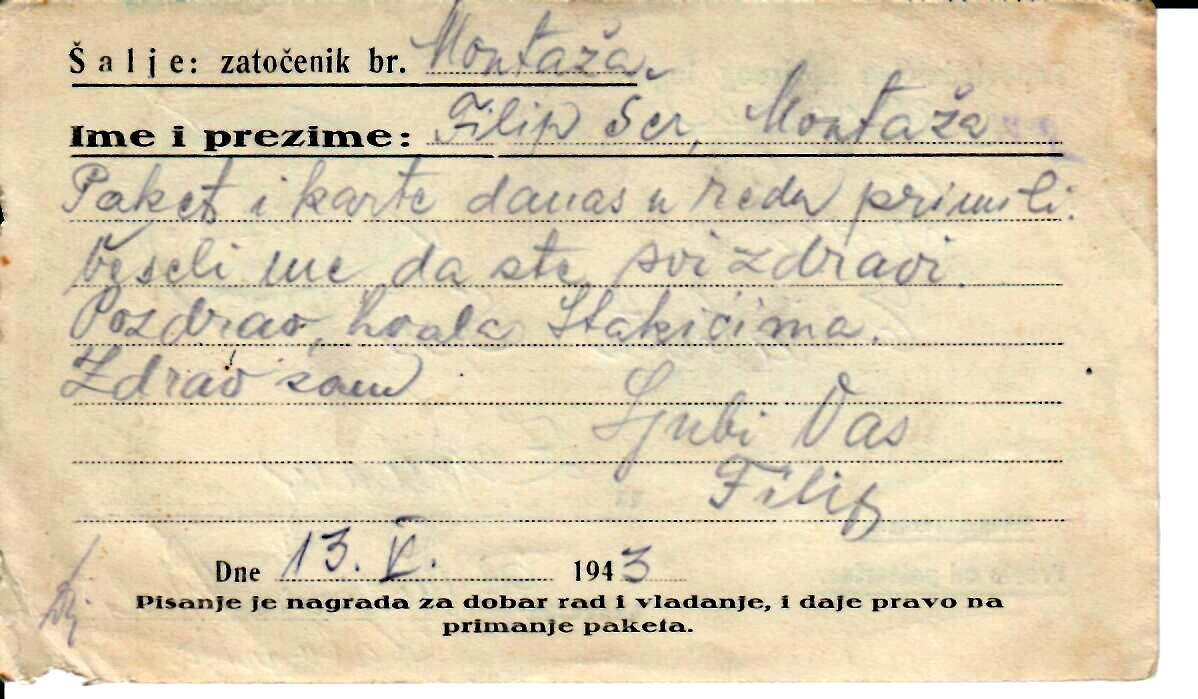 Šalje: zatočenik br. Montaža
Ime i prezime: Filip Scr, Montaža
Paket i karte danas u redu primili.
Veseli me da ste svi zdravi.
Pozdrav, hvala Stakićima.
Zdrav sam
Ljubi Vas
Filip
Dne 13. V. 1943
Pisanje je nagrada za dobar rad i vladanje, i daje pravo na
primanje paketa.